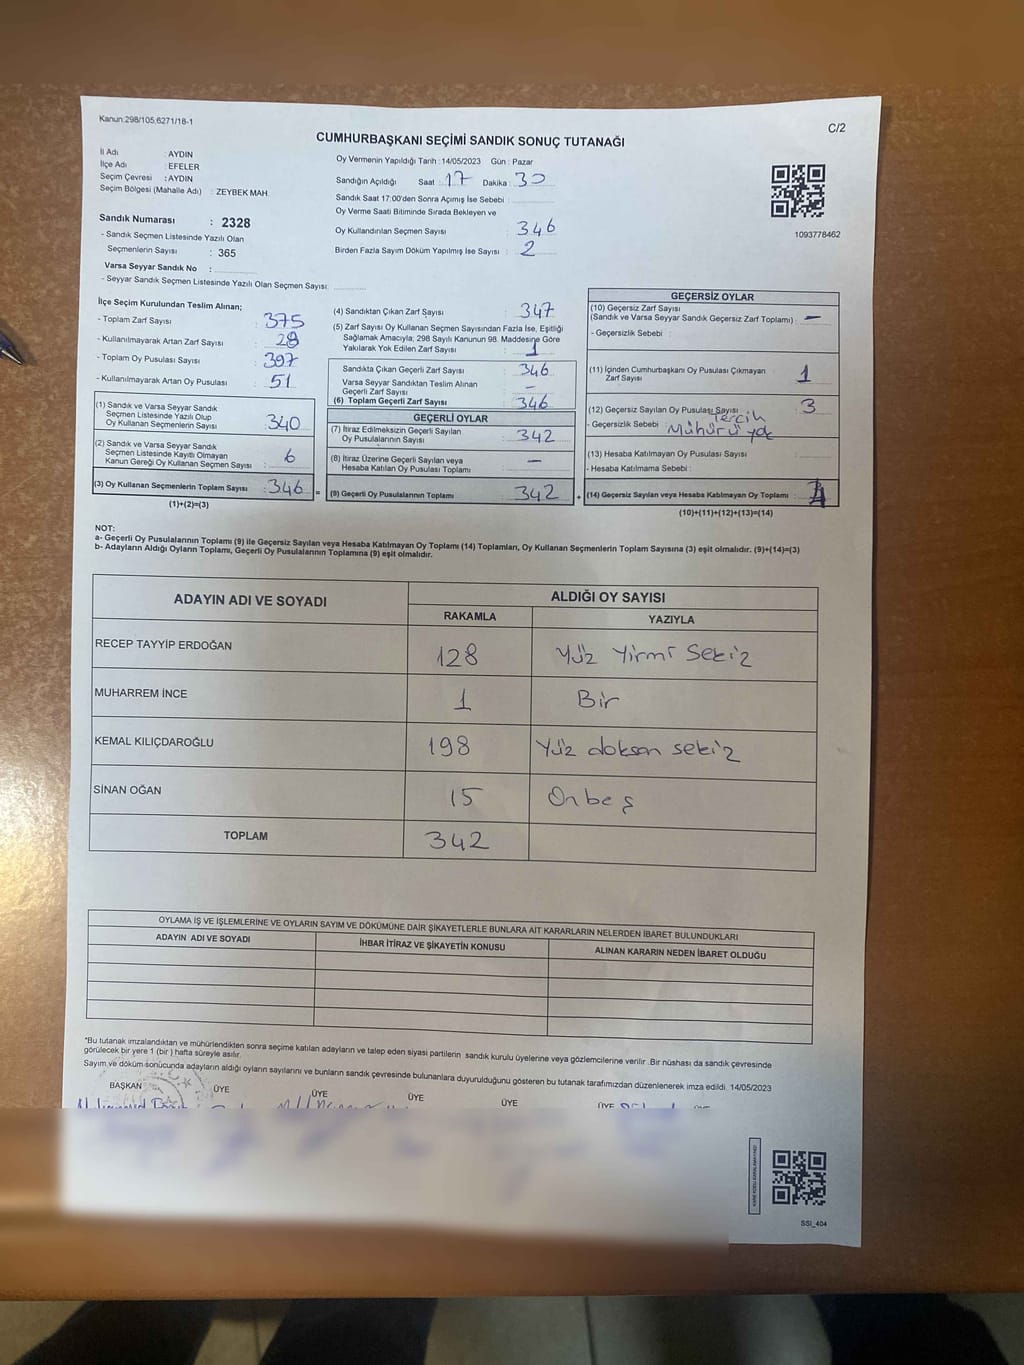 Kanun:298/105,6271/18-1
C/2
CUMHURBAŞKANI SEÇİMİ SANDIK SONUÇ TUTANAĞI
İl Adı : AYDIN
İlçe Adı : EFELER
Seçim Çevresi : AYDIN
Seçim Bölgesi (Mahalle Adı) : ZEYBEK MAH.
Sandık Numarası : 2328
- Sandık Seçmen Listesinde Yazılı Olan
Seçmenlerin Sayısı : 365
Varsa Seyyar Sandık No :
- Seyyar Sandık Seçmen Listesinde Yazılı Olan Seçmen Sayısı:
Oy Vermenin Yapıldığı Tarih : 14/05/2023 Gün : Pazar
Sandığın Açıldığı Saat : 17 Dakika : 30
Sandık Saat 17:00'den Sonra Açımış İse Sebebi :
Oy Verme Saati Bitiminde Sırada Bekleyen ve
Oy Kullandırılan Seçmen Sayısı : 346
Birden Fazla Sayım Döküm Yapılmış İse Sayısı : 2
1093778462
İlçe Seçim Kurulundan Teslim Alınan;
- Toplam Zarf Sayısı : 375
- Kullanılmayarak Artan Zarf Sayısı : 28
- Toplam Oy Pusulası Sayısı : 397
- Kullanılmayarak Artan Oy Pusulası : 51
(1) Sandık ve Varsa Seyyar Sandık
Seçmen Listesinde Yazılı Olup
Oy Kullanan Seçmenlerin Sayısı : 340
(2) Sandık ve Varsa Seyyar Sandık
Seçmen Listesinde Kayıtlı Olmayan
Kanun Gereği Oy Kullanan Seçmen Sayısı : 6
(3) Oy Kullanan Seçmenlerin Toplam Sayısı : 346 =
(1)+(2)=(3)
(4) Sandıktan Çıkan Zarf Sayısı : 347
(5) Zarf Sayısı Oy Kullanan Seçmen Sayısından Fazla İse, Eşitliği
Sağlamak Amacıyla; 298 Sayılı Kanunun 98. Maddesine Göre
Yakılarak Yok Edilen Zarf Sayısı : 1
Sandıkta Çıkan Geçerli Zarf Sayısı : 346
Varsa Seyyar Sandıktan Teslim Alınan
Geçerli Zarf Sayısı : -
(6) Toplam Geçerli Zarf Sayısı : 346
GEÇERLİ OYLAR
(7) İtiraz Edilmeksizin Geçerli Sayılan
Oy Pusulalarının Sayısı : 342
(8) İtiraz Üzerine Geçerli Sayılan veya
Hesaba Katılan Oy Pusulası Toplamı : -
(9) Geçerli Oy Pusulalarının Toplamı : 342 +
GEÇERSİZ OYLAR
(10) Geçersiz Zarf Sayısı
(Sandık ve Varsa Seyyar Sandık Geçersiz Zarf Toplamı) : -
- Geçersizlik Sebebi :
(11) İçinden Cumhurbaşkanı Oy Pusulası Çıkmayan
Zarf Sayısı : 1
(12) Geçersiz Sayılan Oy Pusulası Sayısı : 3
- Geçersizlik Sebebi : Tercih
Mühürü yok
(13) Hesaba Katılmayan Oy Pusulası Sayısı :
- Hesaba Katılmama Sebebi :
(14) Geçersiz Sayılan veya Hesaba Katılmayan Oy Toplamı : 4
(10)+(11)+(12)+(13)=(14)
NOT:
a- Geçerli Oy Pusulalarının Toplamı (9) ile Geçersiz Sayılan veya Hesaba Katılmayan Oy Toplamı (14) Toplamları, Oy Kullanan Seçmenlerin Toplam Sayısına (3) eşit olmalıdır. (9)+(14)=(3)
b- Adayların Aldığı Oyların Toplamı, Geçerli Oy Pusulalarının Toplamına (9) eşit olmalıdır.
ADAYIN ADI VE SOYADI ALDIĞI OY SAYISI
RAKAMLA YAZIYLA
RECEP TAYYİP ERDOĞAN 128 Yüz Yirmi Sekiz
MUHARREM İNCE 1 Bir
KEMAL KILIÇDAROĞLU 198 Yüz doksan sekiz
SİNAN OĞAN 15 Onbeş
TOPLAM 342
OYLAMA İŞ VE İŞLEMLERİNE VE OYLARIN SAYIM VE DÖKÜMÜNE DAİR ŞİKAYETLERLE BUNLARA AİT KARARLARIN NELERDEN İBARET BULUNDUKLARI
ADAYIN ADI VE SOYADI İHBAR İTİRAZ VE ŞİKAYETİN KONUSU ALINAN KARARIN NEDEN İBARET OLDUĞU
*Bu tutanak imzalandıktan ve mühürlendikten sonra seçime katılan adayların ve talep eden siyasi partilerin sandık kurulu üyelerine veya gözlemcilerine verilir .Bir nüshası da sandık çevresinde
görülecek bir yere 1 (bir ) hafta süreyle asılır.
Sayım ve döküm sonucunda adayların aldığı oyların sayılarını ve bunların sandık çevresinde bulunanlara duyurulduğunu gösteren bu tutanak tarafımızdan düzenlenerek imza edildi. 14/05/2023
BAŞKAN ÜYE ÜYE ÜYE ÜYE ÜYE
SSI_404